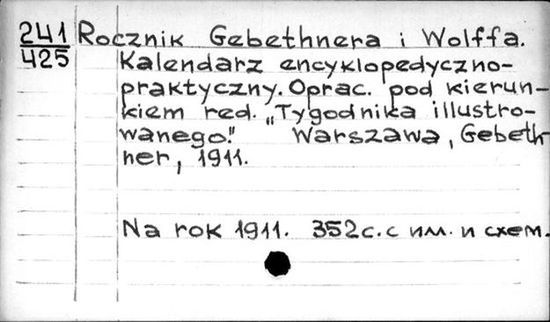 241 Rocznik Gebethnera i Wolffa.
425 Kalendarz encyklopedyczno-
praktyczny. Oprac. pod kierun-
kiem red. „Tygodnika illustro-
wanego." Warszawa, Gebeth
ner, 1911.
Na rok 1911. 352с. с ил. и схем.